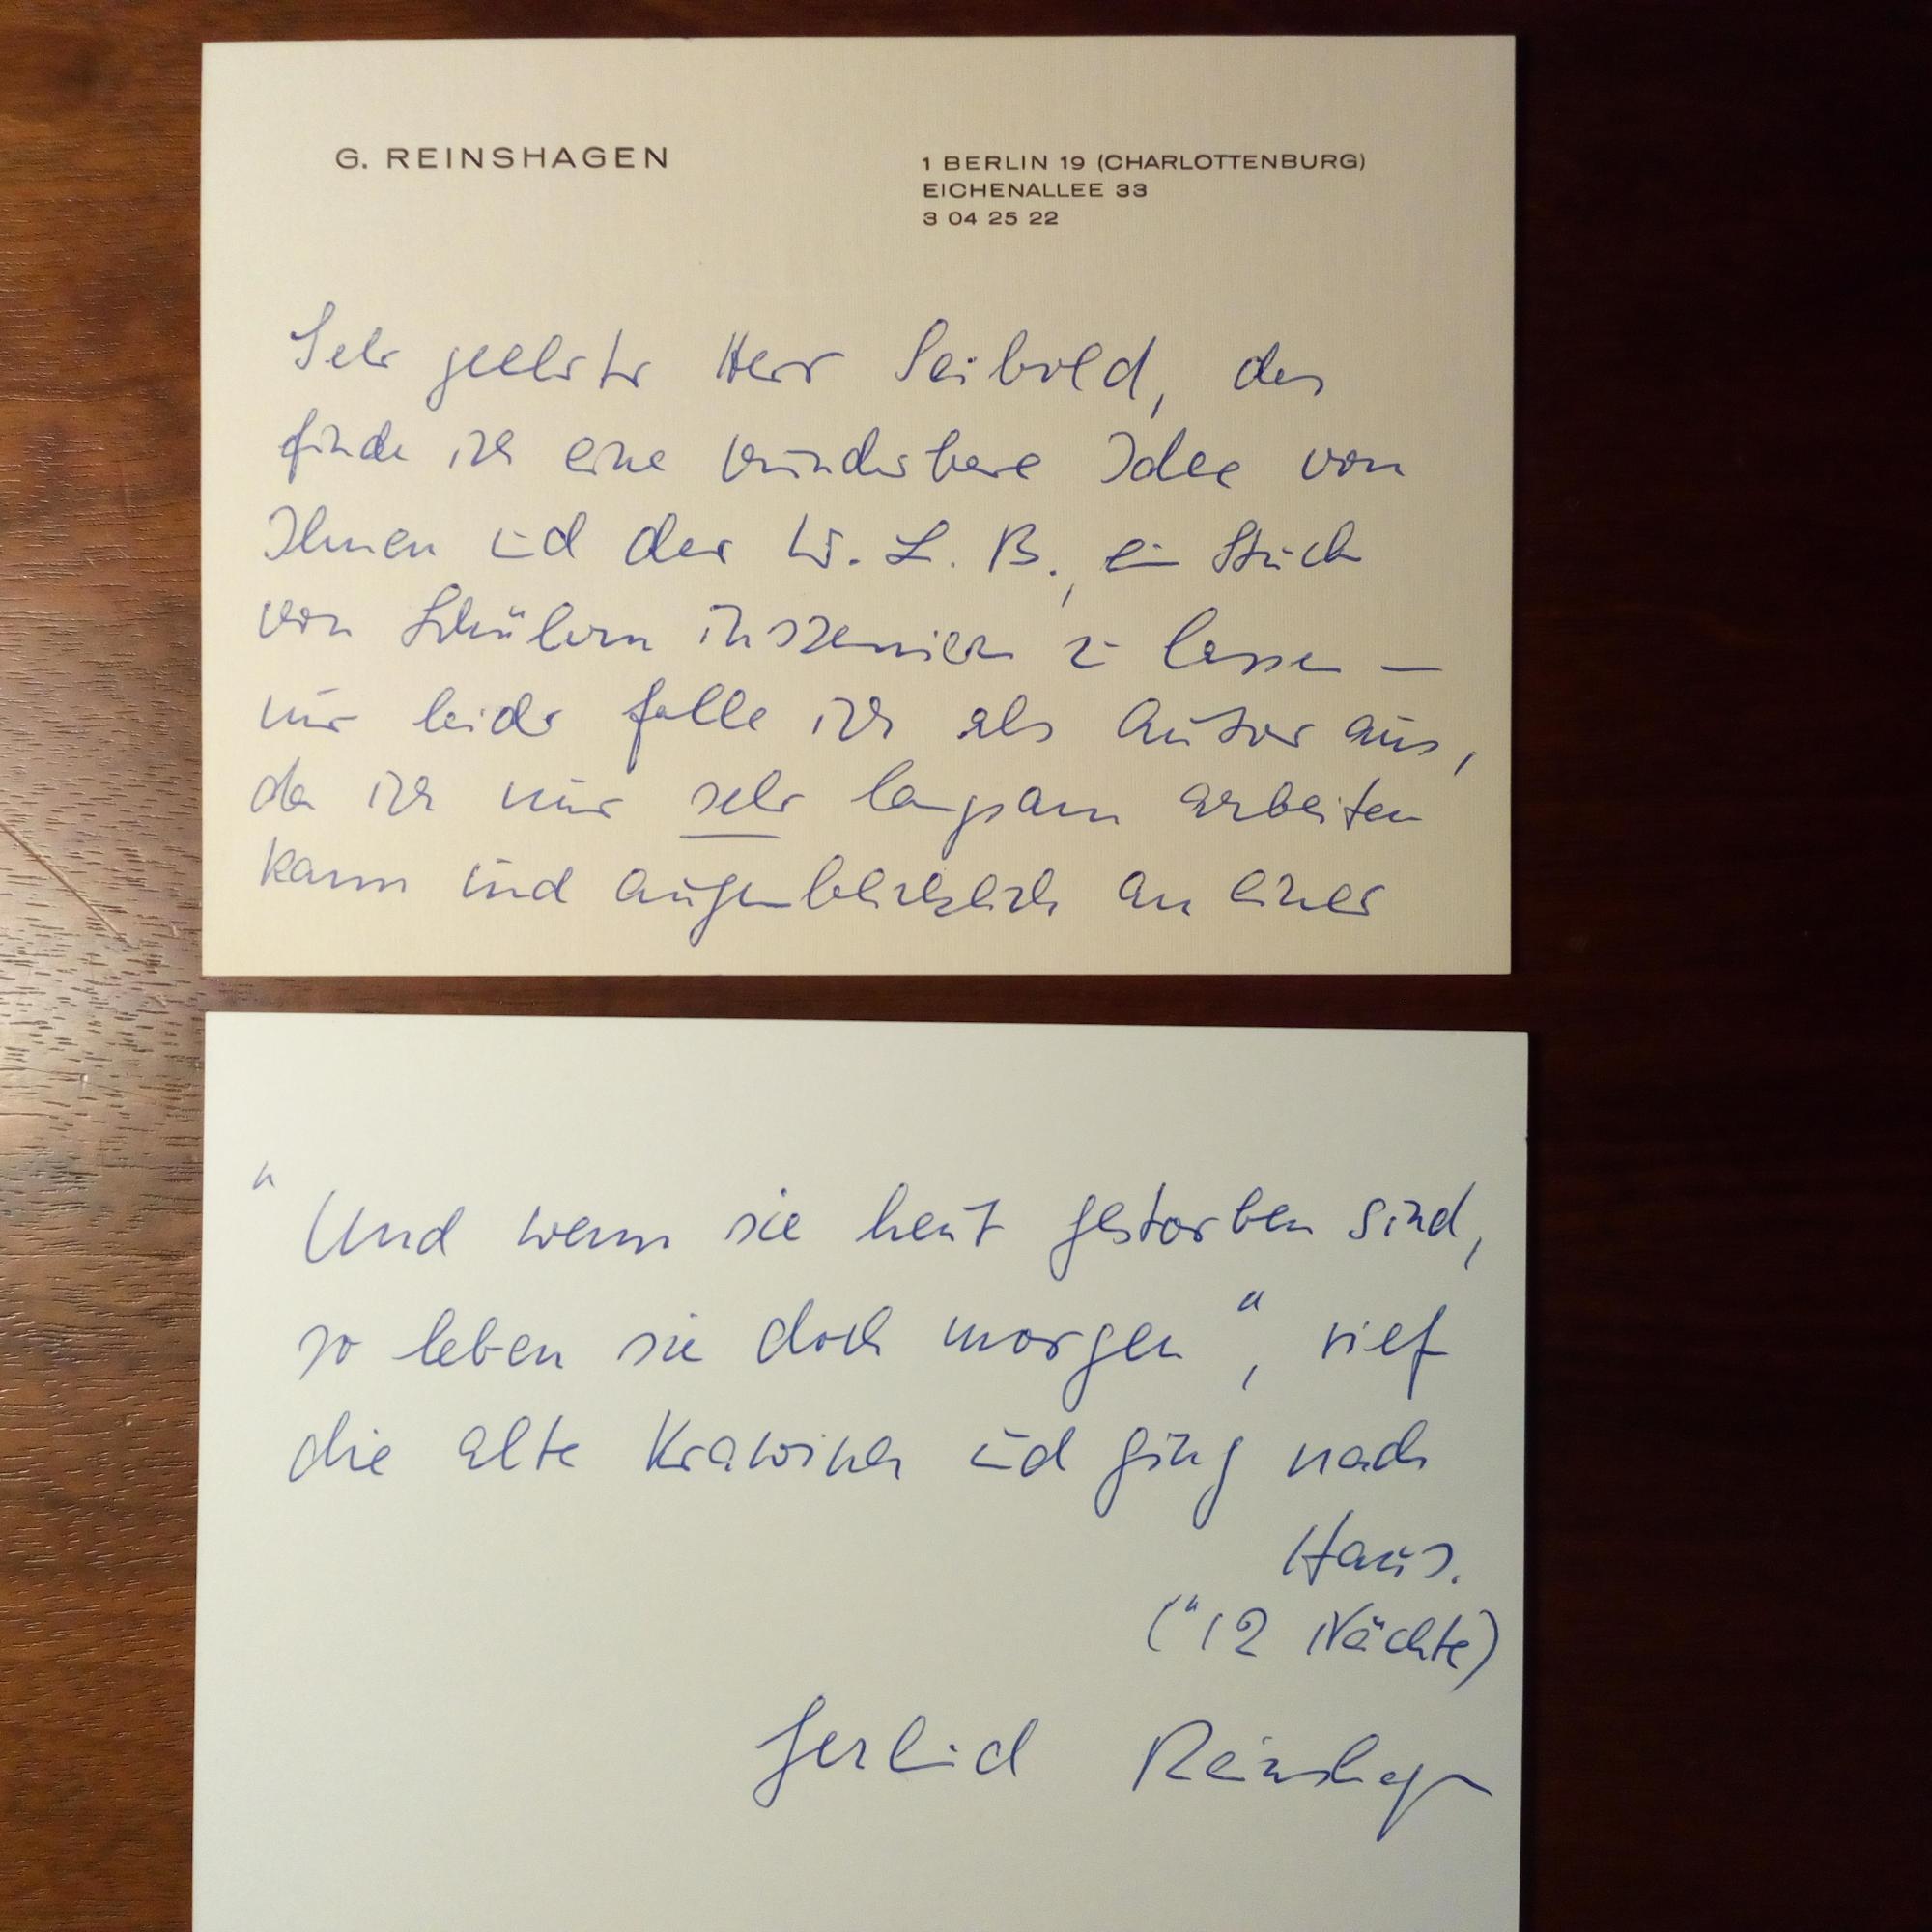 G. REINSHAGEN
1 BERLIN 19 (CHARLOTTENBURG)
EICHENALLEE 33
3 04 25 22
Sehr geehrter Herr Seibold, das
finde ich eine wunderbare Idee von
Ihnen und der W. L. B., ein Stück
von Schülern inszenieren zu lassen –
nur leider falle ich als Autor aus,
da ich nur sehr langsam arbeiten
kann und augenblicklich an einer
"Und wenn sie heut gestorben sind,
so leben sie doch morgen", rief
die alte und ging nach
Haus.
("12 Nächte)
Gerlind Reinshagen